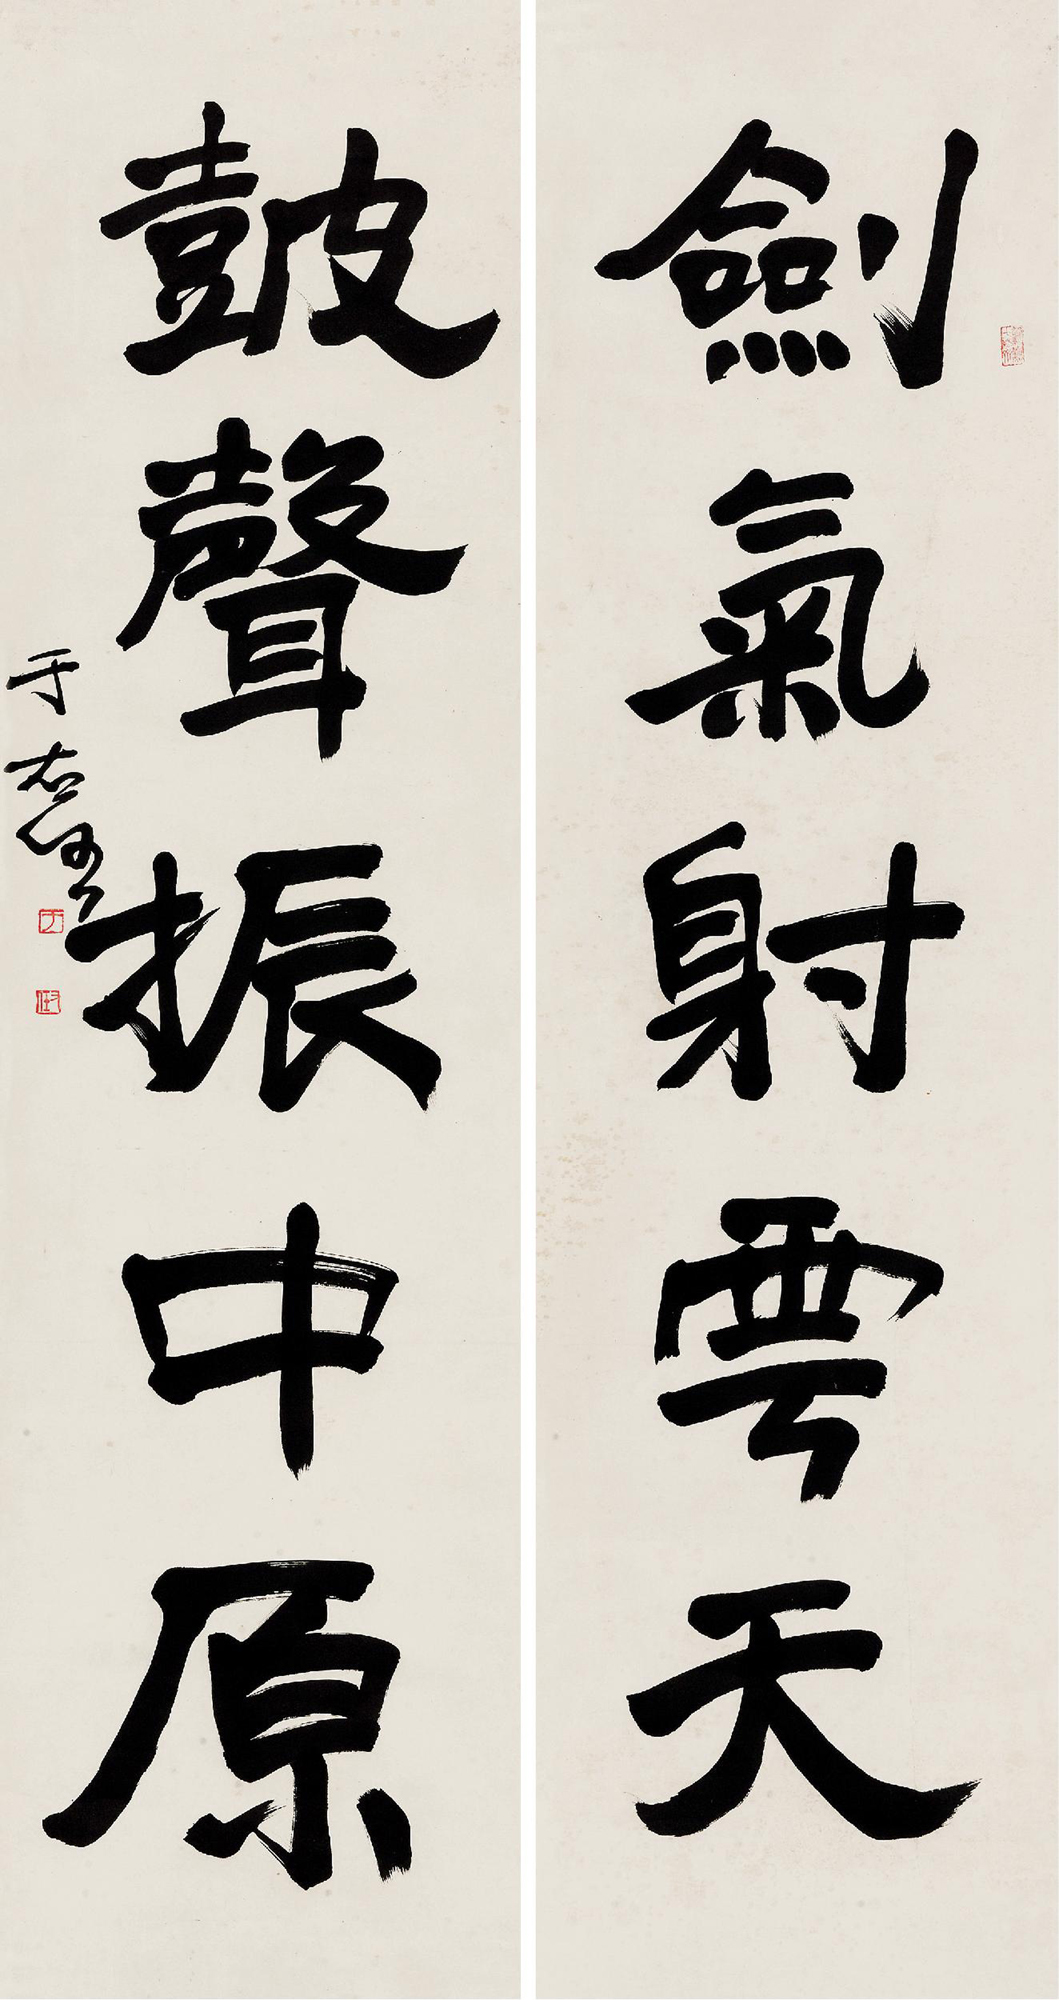 劍氣射雲天
皷聲振中原
于右任